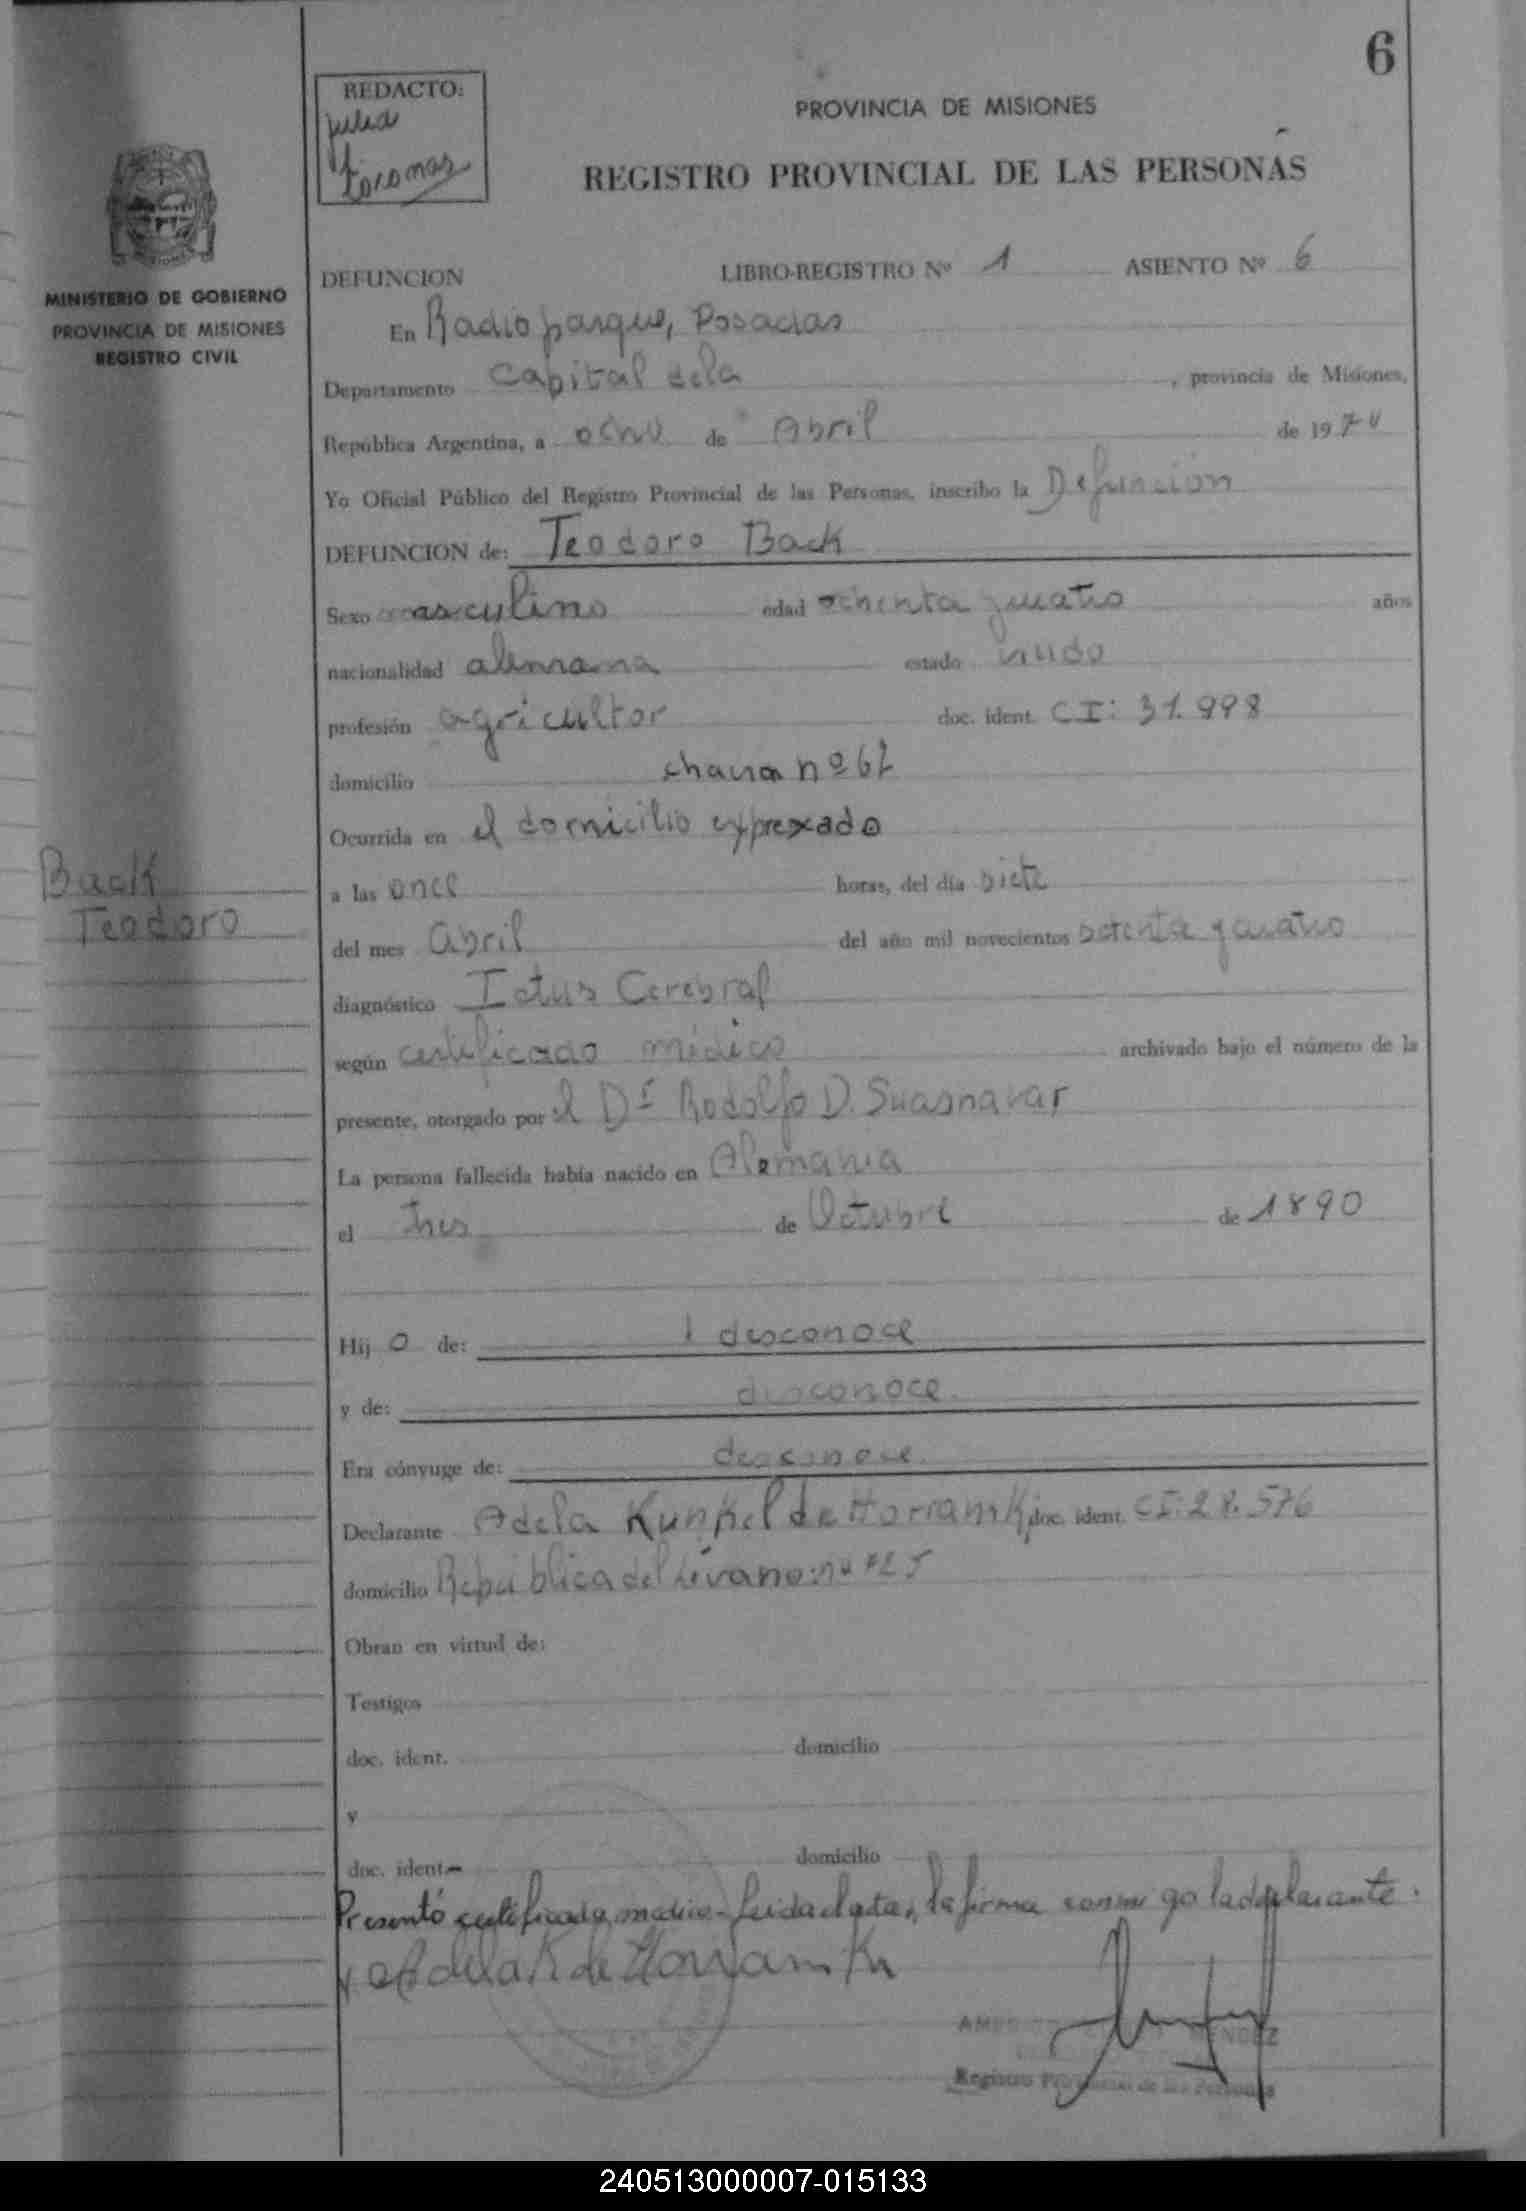 6
REDACTO:
PROVINCIA DE MISIONES
REGISTRO PROVINCIAL DE LAS PERSONAS
MINISTERIO DE GOBIERNO
PROVINCIA DE MISIONES
REGISTRO CIVIL
DEFUNCION LIBRO-REGISTRO Nº 1 ASIENTO Nº 6
En Radio parque, Posadas
Departamento Capital dela, provincia de Misiones,
República Argentina, a ocho de Abril de 1974
Yo Oficial Público del Registro Provincial de las Personas, inscribo la Defunción
DEFUNCION de: Teodoro Back
Sexo masculino edad ochenta y cuatro años
nacionalidad alemana estado viudo
profesión agricultor doc. ident. CI: 31.998
domicilio chacra nº 62
Ocurrida en el domicilio expresado
Back
Teodoro
a las once horas, del día siete
del mes Abril del año mil novecientos setenta y cuatro
diagnóstico Ictus Cerebral
según certificado médico archivado bajo el número de la
presente, otorgado por el Dr Rodolfo D. Suasnavar
La persona fallecida había nacido en Alemania
el tres de Octubre de 1890
Hij o de: desconoce
y de: desconoce
Era cónyuge de: desconoce
Declarante Adela Kunkel de doc. ident. CI: 28.576
domicilio República del
Obran en virtud de:
Testigos
doc. ident. domicilio
y
doc. ident. domicilio
Presentó certificado médico - Leida el acta, la firma conmigo la declarante.
Adela K de
MENDEZ
Registro Provincial de las Personas
240513000007-015133